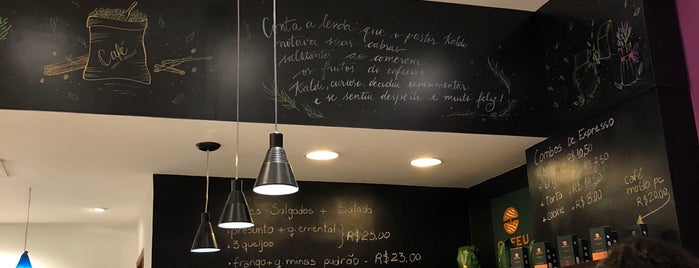 Café
Conta a lenda que o pastor Kaldi
notava suas cabras
saltitando ao comerem
os frutos do cafeeiro
Kaldi, curioso, decidiu experimentar
e se sentiu desperto e muito feliz!
Combos de Expresso
R$10,50
R$
+ torta R$
+ cookie R$ 8,00
Café
moído
R$20,00
Salgados + Salada
presunto + q. emental
R$25,00
• 3 queijos
frango + q. minas padrão - R$23,00